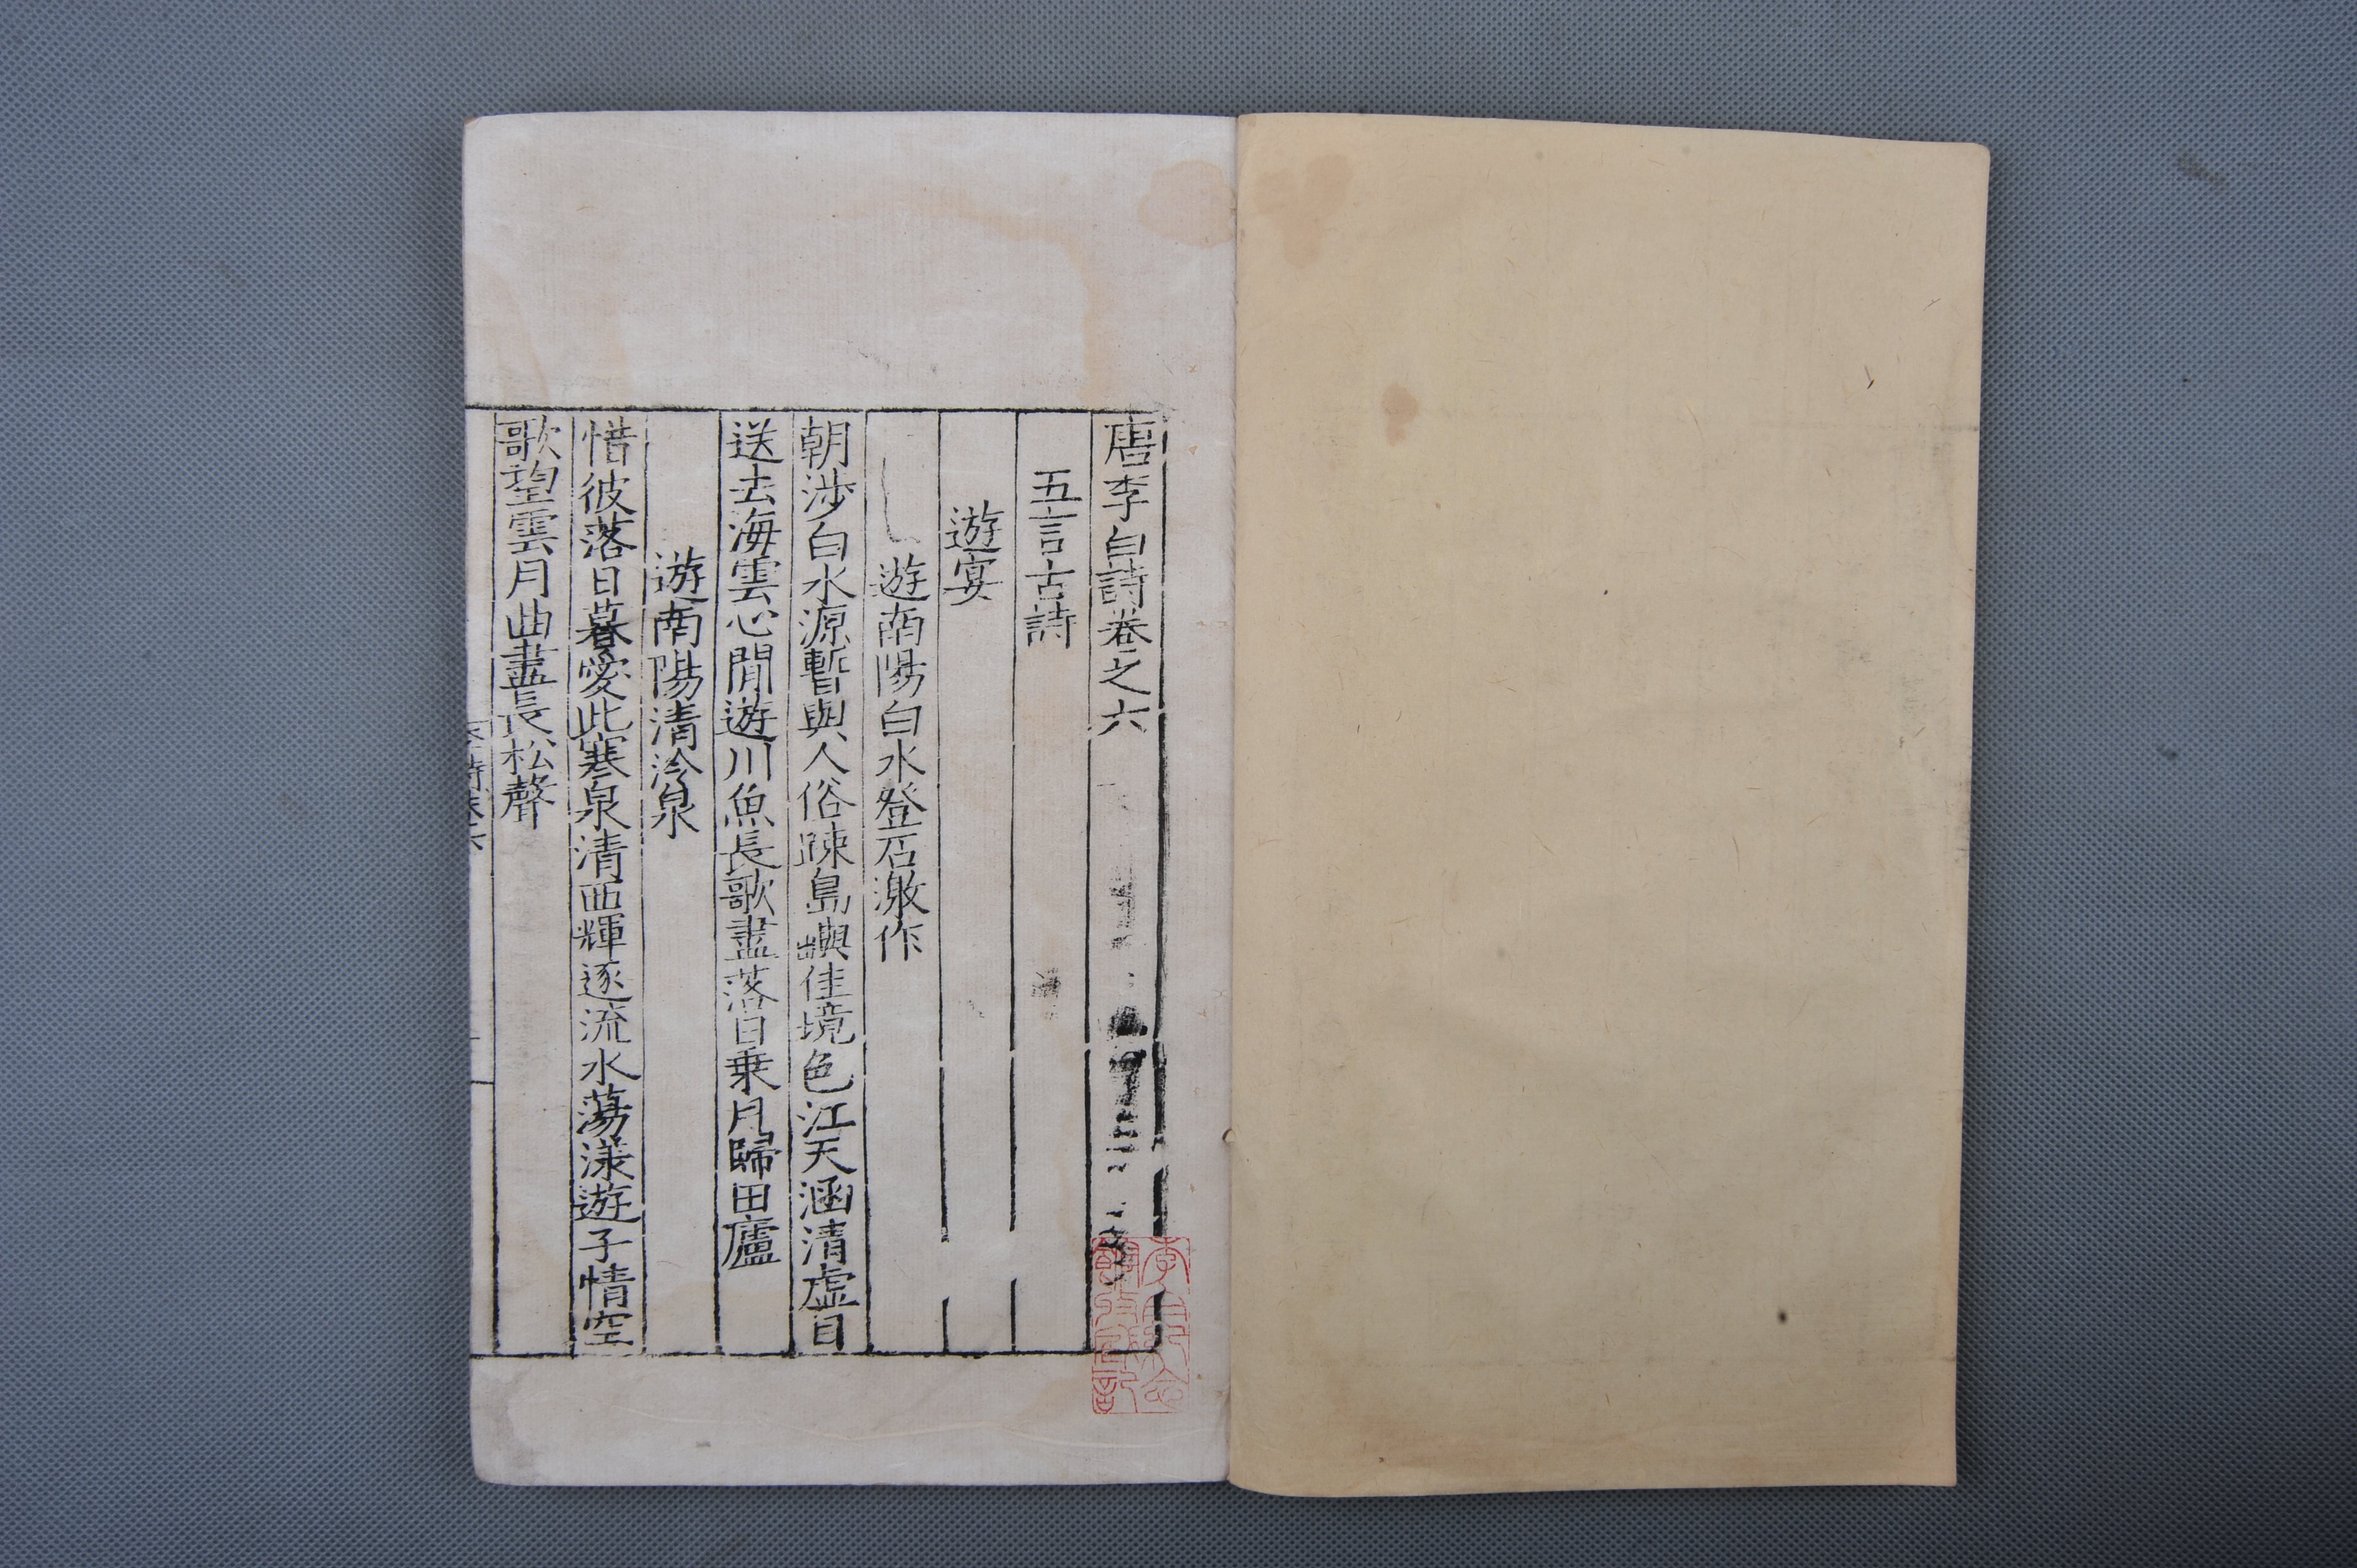 唐李白詩卷之六
五言古詩
遊宴
遊南陽白水登石激作
朝涉白水源暫與人俗踈島嶼佳境色江天涵清虛目
送去海雲心閒遊川魚長歌盡落日乗月歸田廬
遊南陽清泠泉
惜彼落日暮愛此寒泉清西輝逐流水蕩漾遊子情空
歌望雲月曲盡長松聲